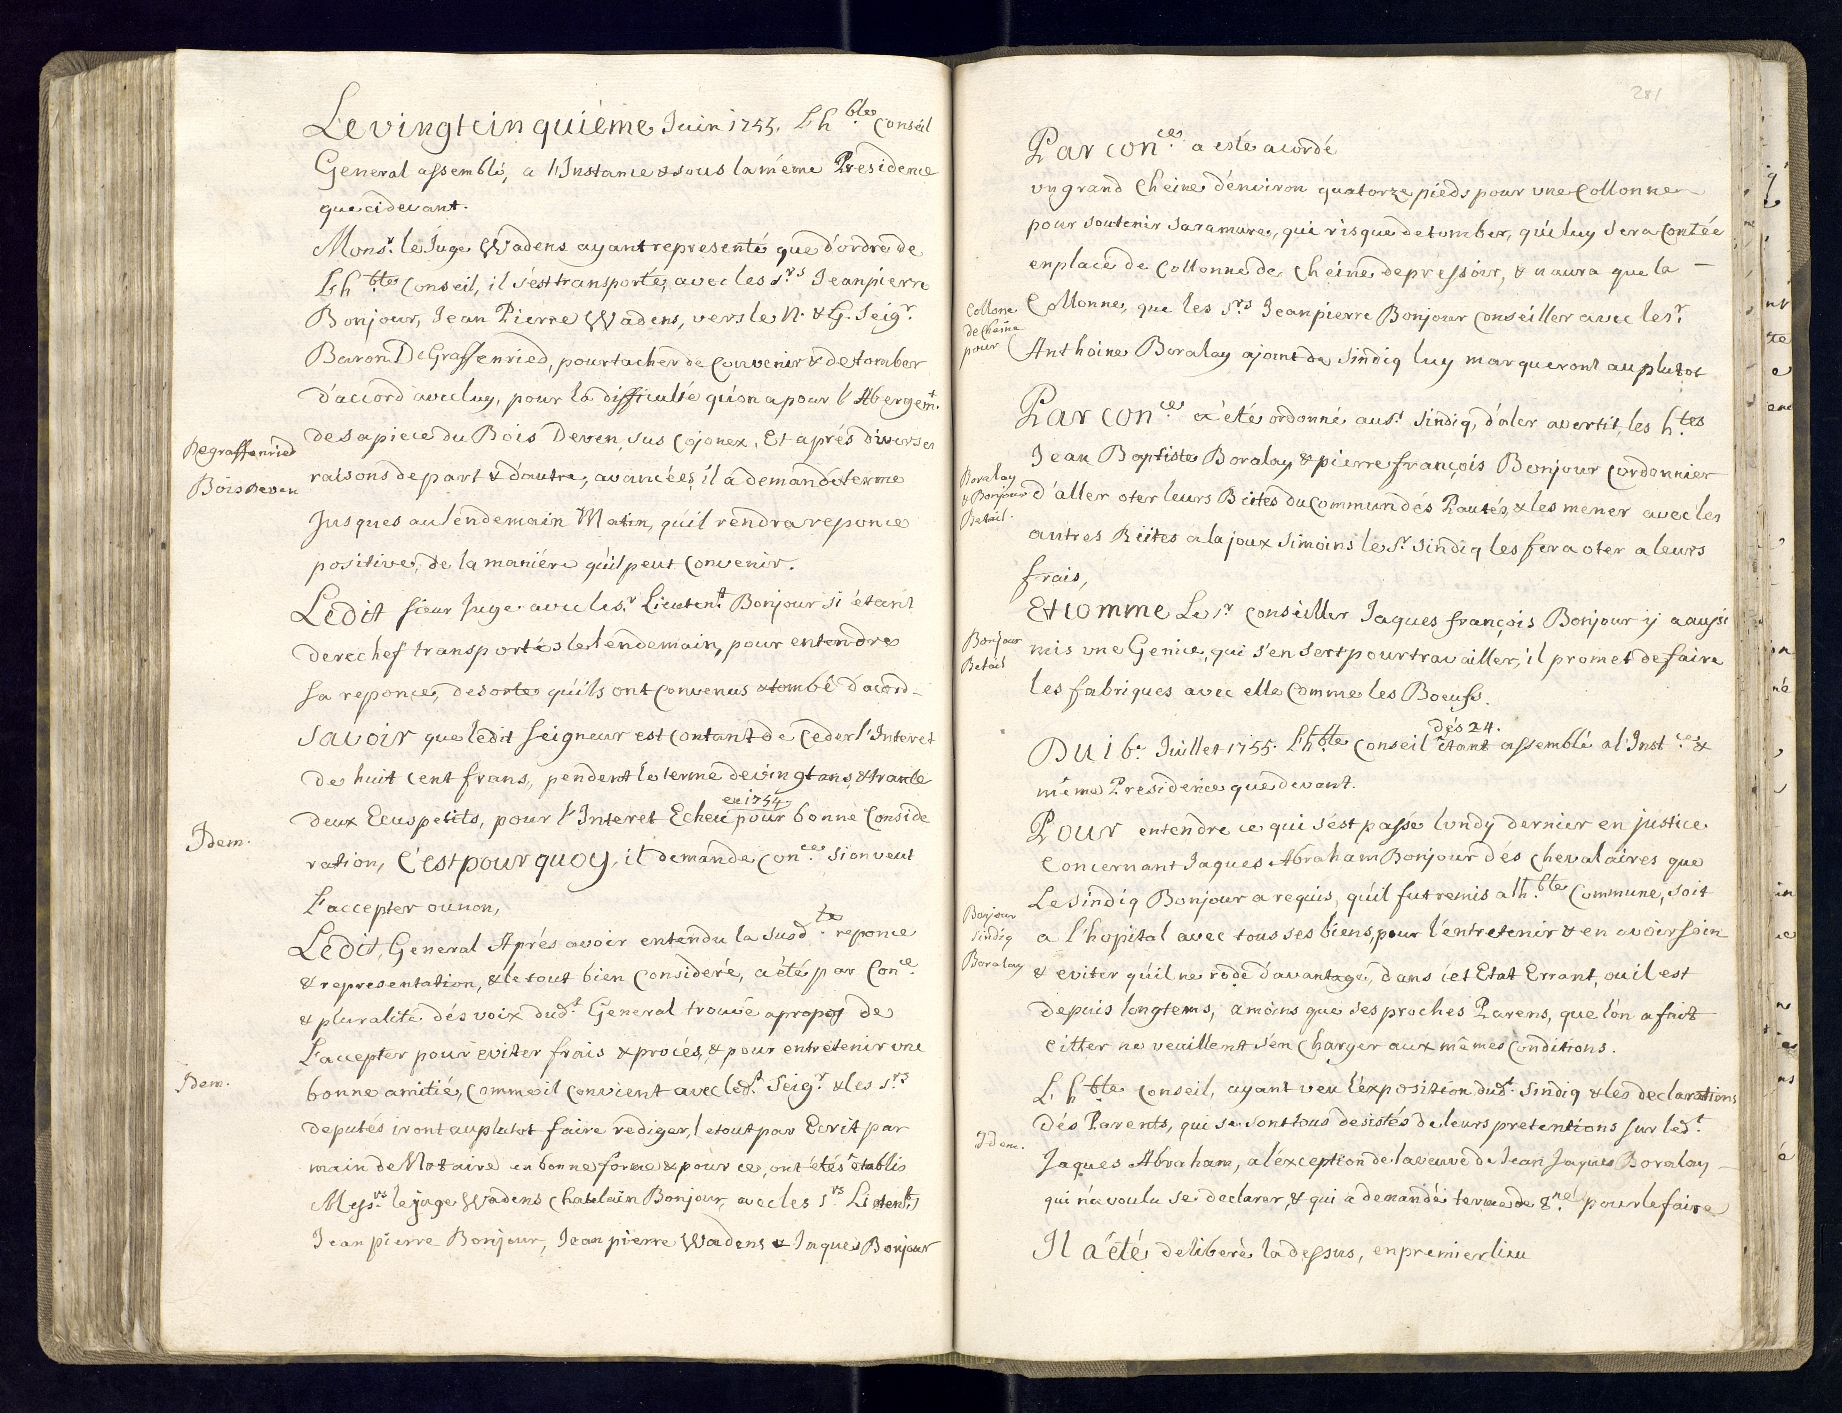 Le vingt cinquiéme Juin 1755. L h.ble Conseil
General assemblé, a l'Instance & sous la méme Presidence
que ci devant.
Mons.r le Juge Wadens ayant representé que d'ordre de
L h.ble Conseil, il s'est transporté, avec les S.rs Jean pierre
Bonjour, Jean Pierre Wadens, vers le N. & G. Seig.r
Baron De Graffenried, pour tacher de Convenir & de tomber
d'accord avec luy, pour la difficulté qu'on a pour l'Abergem.t
Degraffenried
de sa piece du Bois Deven, sus Cojonex, Et aprés diverses
Bois Deven
raisons de part & d'autre, avancées, il a demandé terme
Jusques au lendemain Matin, qu'il rendra reponce
positive, de la maniére qu'il peut Convenir.
Ledit sieur Juge avec le s.r Lieuten.t Bonjour si étant
derechef transportés le lendemain, pour entendre
sa reponce, de sorte qu'ils ont convenus & tombé d'acord
savoir que ledit seigneur est contant de Ceder l'Interet
de huit cent frans, pendent le terme de vingt ans, & trante
en 1754
deux Ecus petits, pour l'Interet Echeu pour bonne Conside
Idem.
ration, C'est pourquoy, il demande Con.ce si on veut
L'accepter ou non,
Ledit, General Aprés avoir entendu la susd.te reponce
& representation, & le tout bien Consideré, a été par Con.ce
& pluralité dés voix dud.t General trouvé apropos de
L'accepter pour eviter frais & procés, & pour entretenir une
Idem.
bonne amitié, Comme il convient avec led.t Seig.r & les S.rs
deputés iront au plutot faire rediger, le tout par Ecrit par
main de Notaire en bonne forme & pour ce, ont étés établis
Mess.rs le juge Wadens Chatelain Bonjour, avec les S.rs Lieten.t
Jean pierre Bonjour, Jean pierre Wadens & Jaques Bonjour
281
Par Con.ce a esté acordé
vn grand Cheine d'environ quatorze pieds pour vne Collonne
pour soutenir sa ramure, qui risque de tomber, qui luy sera Contée
en place de Collonne de Cheine de pressoir, & n'aura que la
Collone
de cheine
pour
Collonne, que les S.rs Jean pierre Bonjour Conseiller avec le s.r
Anthoine Boralay ajoint de Sindiq luy marqueront au plutot
Par Con.ce a été ordonné au s.r Sindiq, d'aler avertit, les h.tes
Jean Baptiste Boralay & pierre françois Bonjour cordonnier
Boralay
& Bonjour
Betail.
d'aller oter leurs Bêtes du Commun dés Pautés, & les mener avec les
autres Bêtes a la joux si moins le S.r Sindiq les fera oter a leurs
frais,
Et Comme Le S.r Conseiller Jaques françois Bonjour ij a aussi
Bonjour
Betail
mis une Genice, qui s'en sert pour travailler, il promet de faire
les fabriques avec elle Comme les Boeufs.
dés 24.
Du 16.e Juillet 1755. L'h.ble Conseil étant assemblé a l'Inst.ce &
méme Presidence que devant.
Pour entendre ce qui s'est passe lundy dernier en justice
Concernant Jaques Abraham Bonjour dés Chevalaires que
Le sindiq Bonjour a requis, qu'il fut remis a l'h.ble Commune, soit
Bonjour
Sindiq
Boralay
a l'hopital avec tous ses biens, pour l'entretenir & en avoir soin
& eviter qu'il ne rode d'avantage dans cet Etat Errant, ou il est
depuis longtems, a moins que ses proches Parens, que l'on a fait
citter ne veuillent s'en Charger aux mêmes Conditions.
L h.ble Conseil, ayant veu l'exposition dud.t Sindiq & les declarations
Dés Parents, qui se sont tous desistés de leurs pretentions sur led.t
Idem.
Jaques Abraham, a l'éxception de la veuve de Jean Jaques Boralay
qui n'a voulu se declarer, & qui a demandé terme de 8.ne pour le faire
Il a été deliberé la dessus, en premier lieu